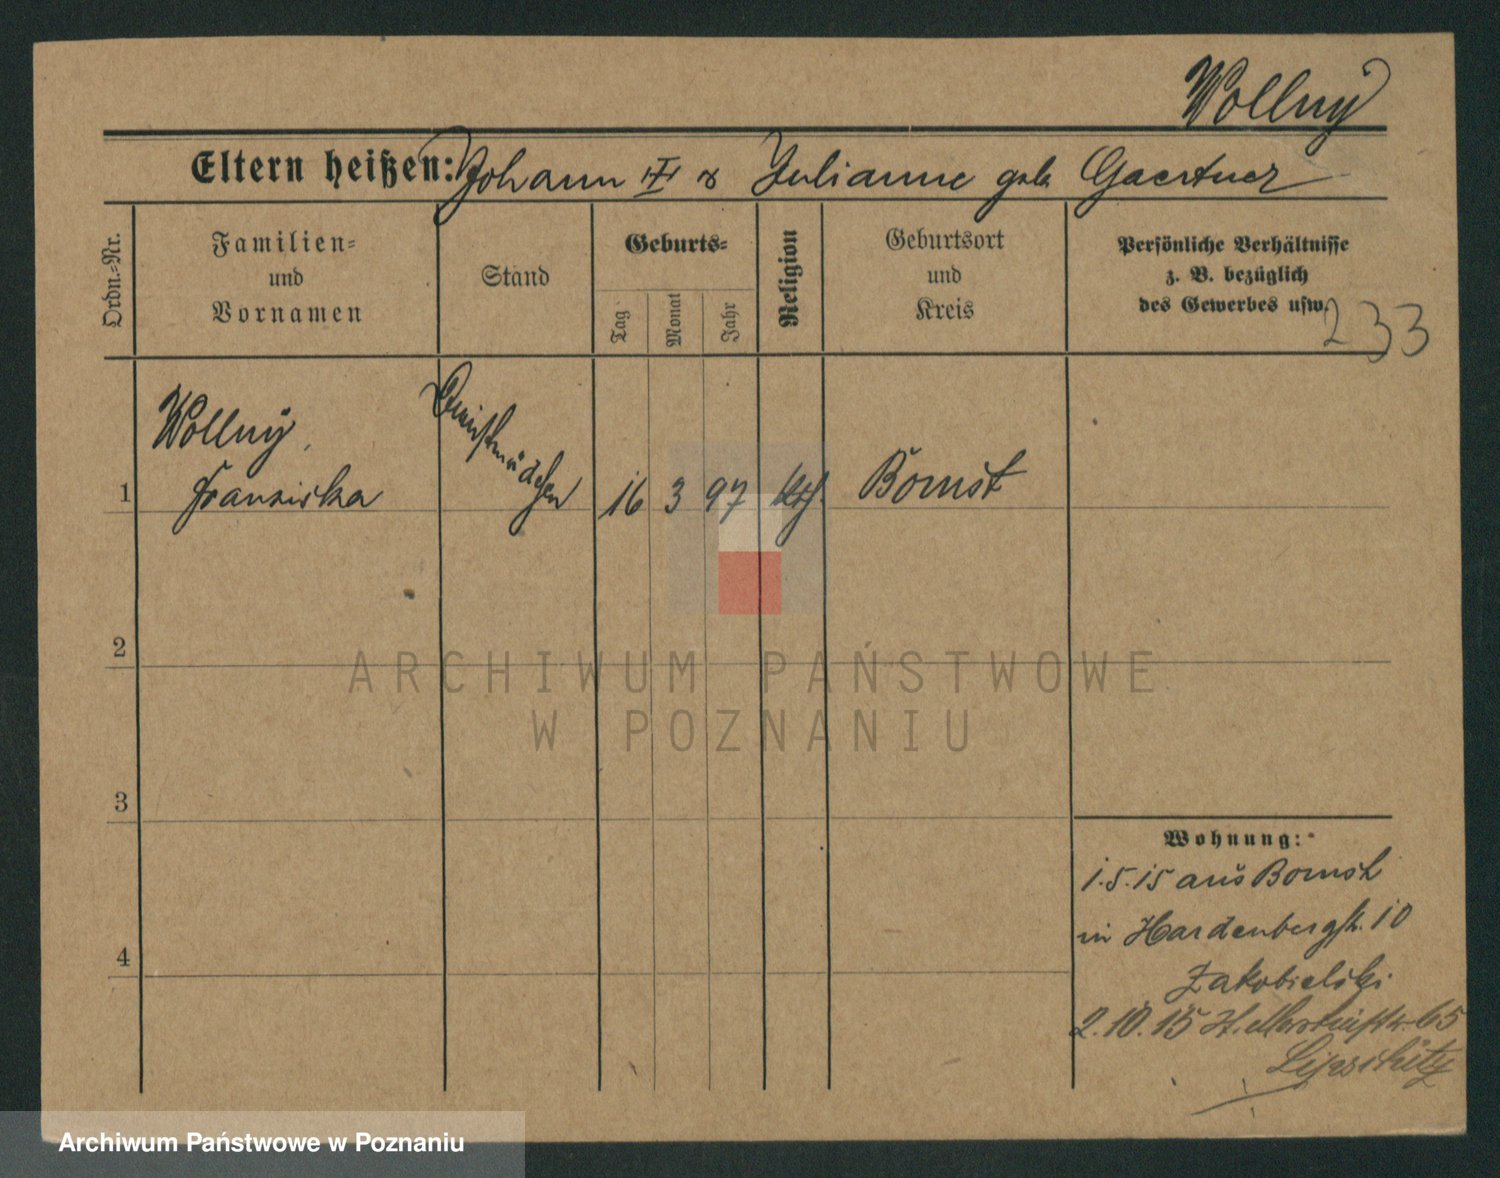 Wollny
Eltern heißen: Johann III & Julianne geb. Gaertner
Ordn.=Nr.
Familien=
und
Vornamen
Stand
Geburts=
Tag
Monat
Jahr
Religion
Geburtsort
und
Kreis
Persönliche Verhältnisse
z. B. bezüglich
des Gewerbes usw.
233
Wollny,
1 Franziska Dienstmädchen 16 3 97 kth. Bomst
2
3
4
ARCHIWUM PAŃSTWOWE
W POZNANIU
Wohnung:
1.5.15 aus Bomst
in Hardenbergstr. 10
Jakobielski
2.10.15 65
Lipschütz
Archiwum Państwowe w Poznaniu